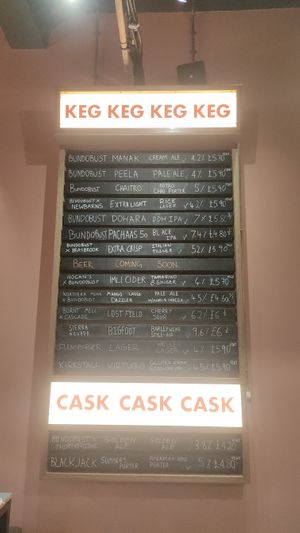 KEG KEG KEG KEG
BUNDOBUST MANAK CREAM ALE 4.2% £5.70
BUNDOBUST PEELA PALE ALE 4% £5.90
BUNDOBUST CHAITRO NITRO CHAI PORTER 5% £5.90
BUNDOBUST X NEWBARNS EXTRA LIGHT RICE LAGER 4.2% £5.90
BUNDOBUST DOHARA DDH IPA 7%
BUNDOBUST PACHAAS 50 BLACK IPA 7.4% £4.80
BUNDOBUST X BRAYBROOKE EXTRA CRISP ITALIAN PILSNER 5.2% £5.90
BEER COMING SOON
HOGAN'S X BUNDOBUST IMLI CIDER TAMARIND & GINGER 4% £5.90
NORTHERN MONK X BUNDOBUST MANGO LASSI PALE ALE 4.5% £4.60
BURNT MILL X CASCADE LOST FIELD CHERRY SOUR 6.2% £6
SIERRA NEVADA BIGFOOT BARLEYWINE 9.6% £6
LAGER HELLES LAGER 4% £5.90
KIRKSTALL VIRTUOUS 4.5% £5.90
CASK CASK CASK
BUNDOBUST X GOLDEN ALE GOLDEN ALE 3.8% £4.20
BLACKJACK PORTER PORTER 5% £4.80